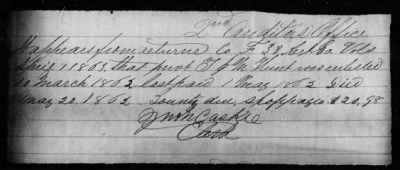 2nd Auditors Office
It appears from returns Co. F. 38. Regt. Ga. Vols
April 1. 1863, that privt T J M Hunt was enlisted
10 March 1862, last paid 1 May 1862 Died
May 20. 1862. Bounty due, stoppages $20,98
Clerk